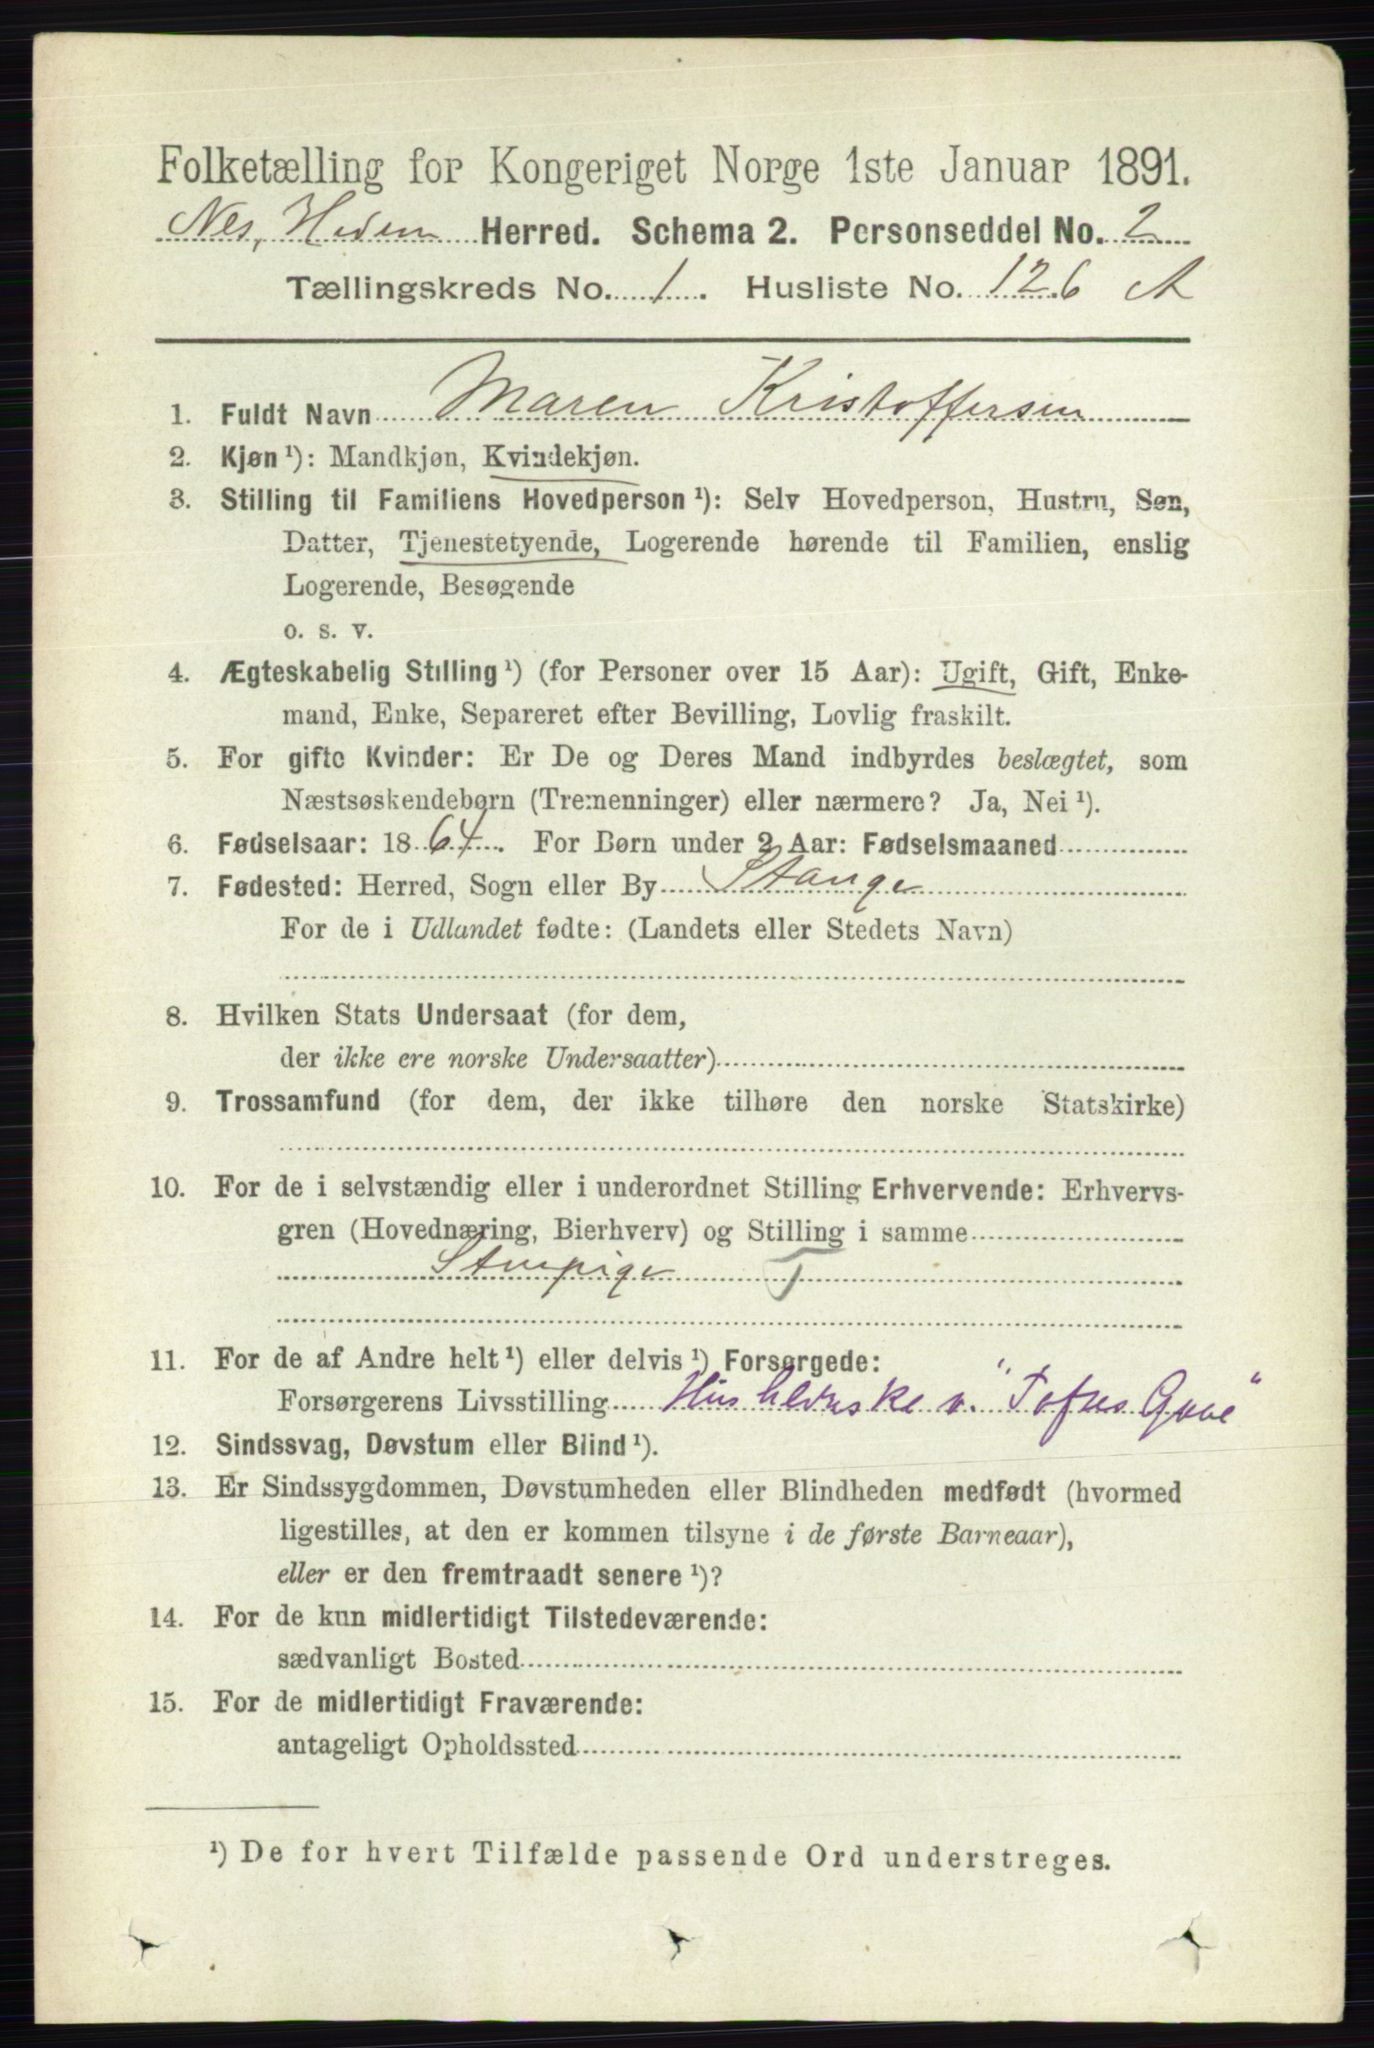 Folketælling for Kongeriget Norge 1ste Januar 1891.
Nes, Hedem Herred. Schema 2. Personseddel No. 2
Tællingskreds No. 1. Husliste No. 126 A
1. Fuldt Navn Maren Kristoffersen
2. Kjøn ¹): Mandkjøn, Kvindekjøn.
3. Stilling til Familiens Hovedperson ¹): Selv Hovedperson, Hustru, Søn,
Datter, Tjenestetyende, Logerende hørende til Familien, enslig
Logerende, Besøgende
o. s. v.
4. Ægteskabelig Stilling ¹) (for Personer over 15 Aar): Ugift, Gift, Enke-
mand, Enke, Separeret efter Bevilling, Lovlig fraskilt.
5. For gifte Kvinder: Er De og Deres Mand indbyrdes beslægtet, som
Næstsøskendebørn (Tremenninger) eller nærmere? Ja, Nei ¹).
6. Fødselsaar: 1864. For Børn under 2 Aar: Fødselsmaaned
7. Fødested: Herred, Sogn eller By Stange
For de i Udlandet fødte: (Landets eller Stedets Navn)
8. Hvilken Stats Undersaat (for dem,
der ikke ere norske Undersaatter)
9. Trossamfund (for dem, der ikke tilhøre den norske Statskirke)
10. For de i selvstændig eller i underordnet Stilling Erhvervende: Erhvervs-
gren (Hovednæring, Bierhverv) og Stilling i samme
Stuepige T
11. For de af Andre helt ¹) eller delvis ¹) Forsørgede:
Forsørgerens Livsstilling Husholderske v. "Toftes Gave"
12. Sindssvag, Døvstum eller Blind ¹).
13. Er Sindssygdommen, Døvstumheden eller Blindheden medfødt (hvormed
ligestilles, at den er kommen tilsyne i de første Barneaar),
eller er den fremtraadt senere ¹)?
14. For de kun midlertidigt Tilstedeværende:
sædvanligt Bosted
15. For de midlertidigt Fraværende:
antageligt Opholdssted
¹) De for hvert Tilfælde passende Ord understreges.